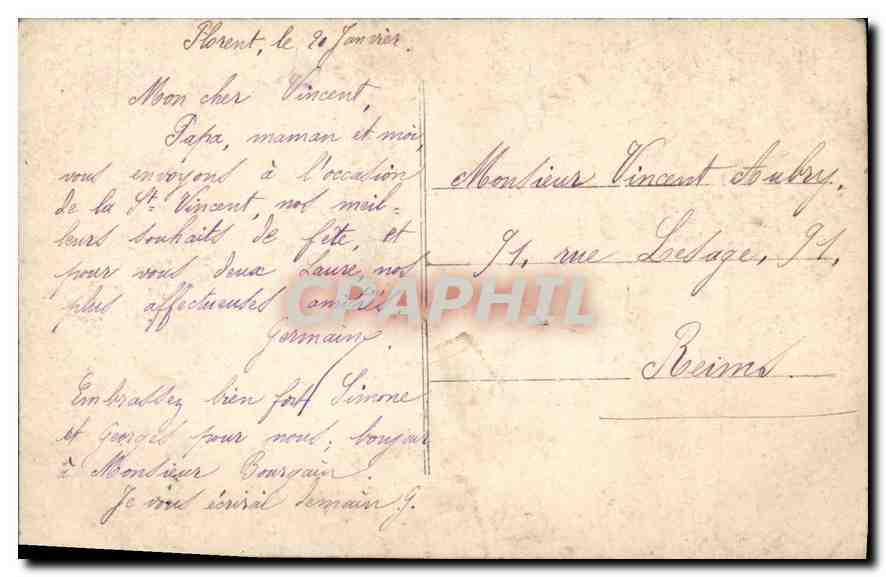 Florent, le 20 Janvier.
Mon cher Vincent,
Papa, maman et moi,
vous envoyons à l'occasion
de la St. Vincent, nos meil-
leurs souhaits de fête, et
pour vous deux Laure, nos
plus affectueuses amitiés.
Germaine.
Embrassez bien fort Simone
et Georges pour nous, bonjour
à Monsieur Bourgain.
Je vous écrirai demain G.
Monsieur Vincent Aubry.
91, rue Lesage, 91,
Reims
CPAPHIL